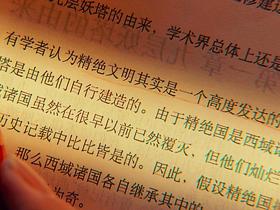 九层妖塔的由来，学术界总体上还是
有学者认为精绝文明其实是一个高度发达的
塔是由他们自行建造的。由于精绝国是西域诸
域诸国虽然在很早以前已然覆灭，但他们灿烂
历史记载中比比皆是的。因此，假设精绝国
那么西域诸国各自继承其中的
为奇。